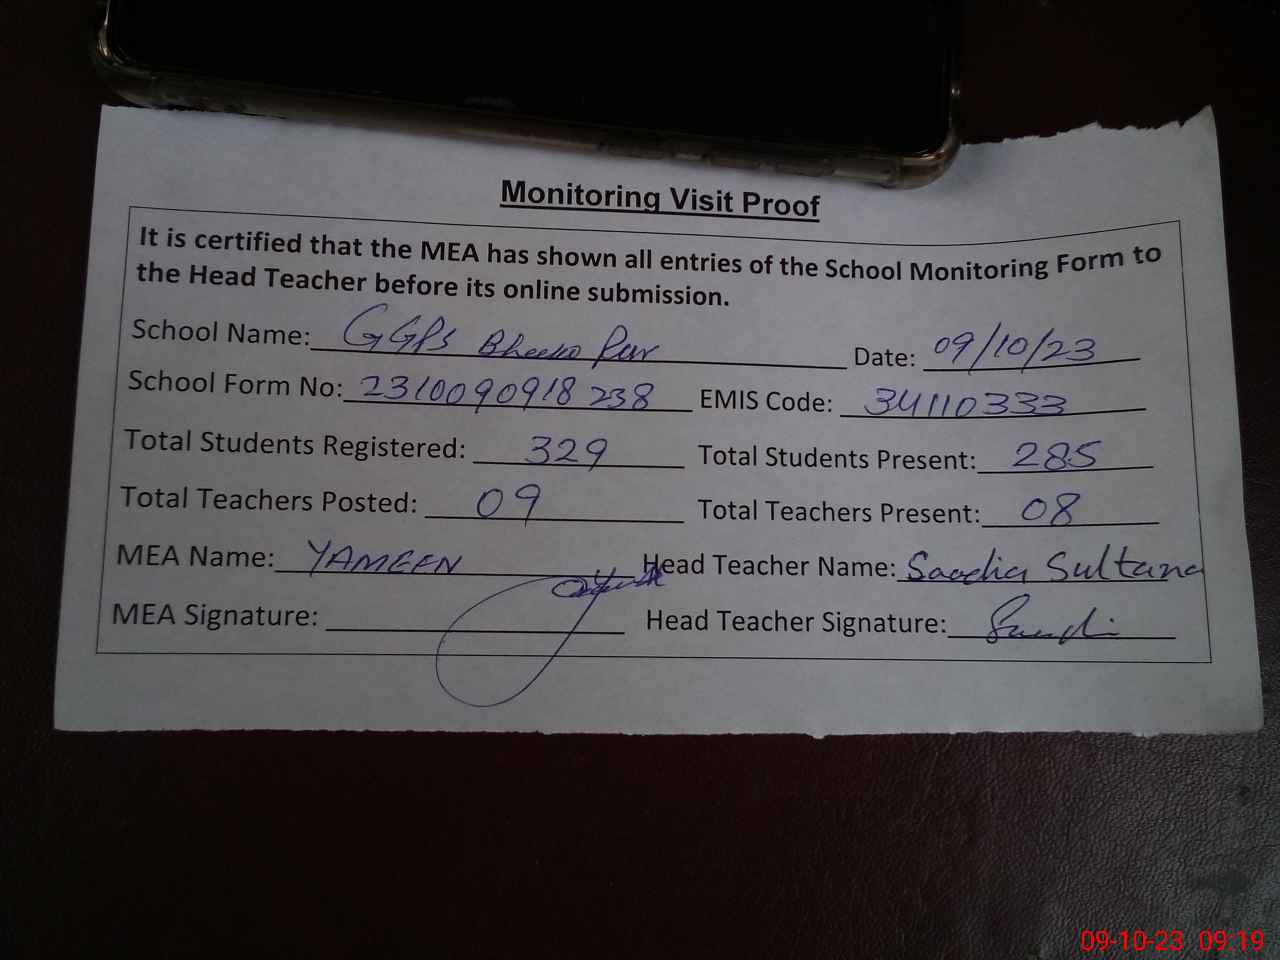 Monitoring Visit Proof
It is certified that the MEA has shown all entries of the School Monitoring Form to
the Head Teacher before its online submission.
School Name: GGPS Bheeko Pur Date: 09/10/23
School Form No: 2310090918238 EMIS Code: 34110333
Total Students Registered: 329 Total Students Present: 285
Total Teachers Posted: 09 Total Teachers Present: 08
MEA Name: YAMEEN Head Teacher Name: Saadia Sultana
MEA Signature: Head Teacher Signature:
09-10-23 09:19